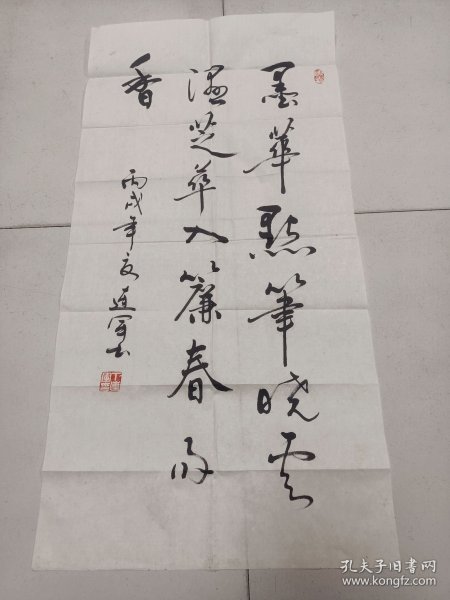 墨華點筆曉雲
濕芝華入簾春雨
香
丙戌年夏建军书
孔夫子旧书网
www.kongfz.com